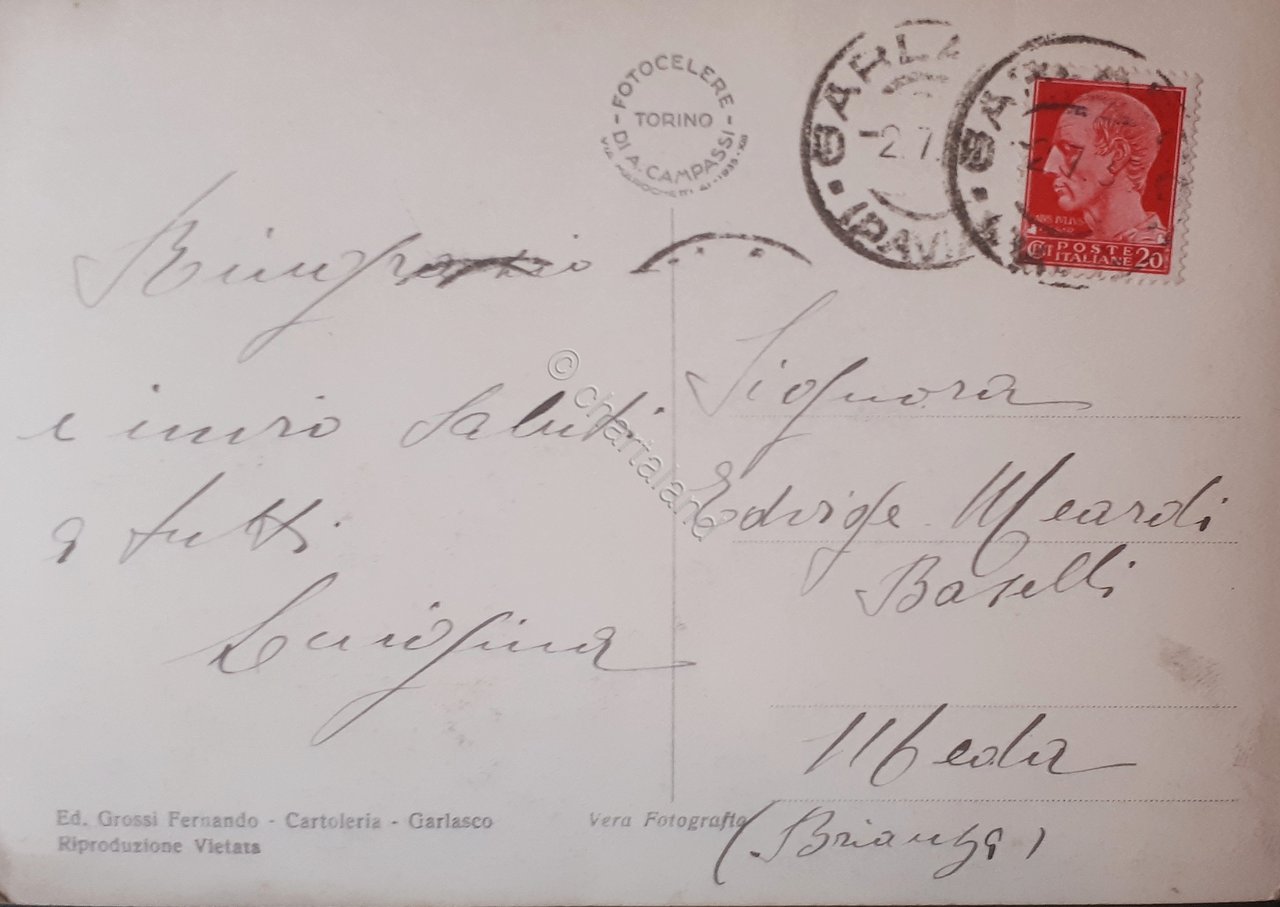 FOTOCELERE
TORINO
DI A. CAMPASSI
GARLA
-2.7.
(PAVIA
POSTE
ITALIANE 20
Ringrazio
e invio saluti
a tutti
Luigina
Signora
Edvige Meardi
Baselli
Meda
(Brianza)
Ed. Grossi Fernando - Cartoleria - Garlasco
Riproduzione Vietata
Vera Fotografia
© chartaland